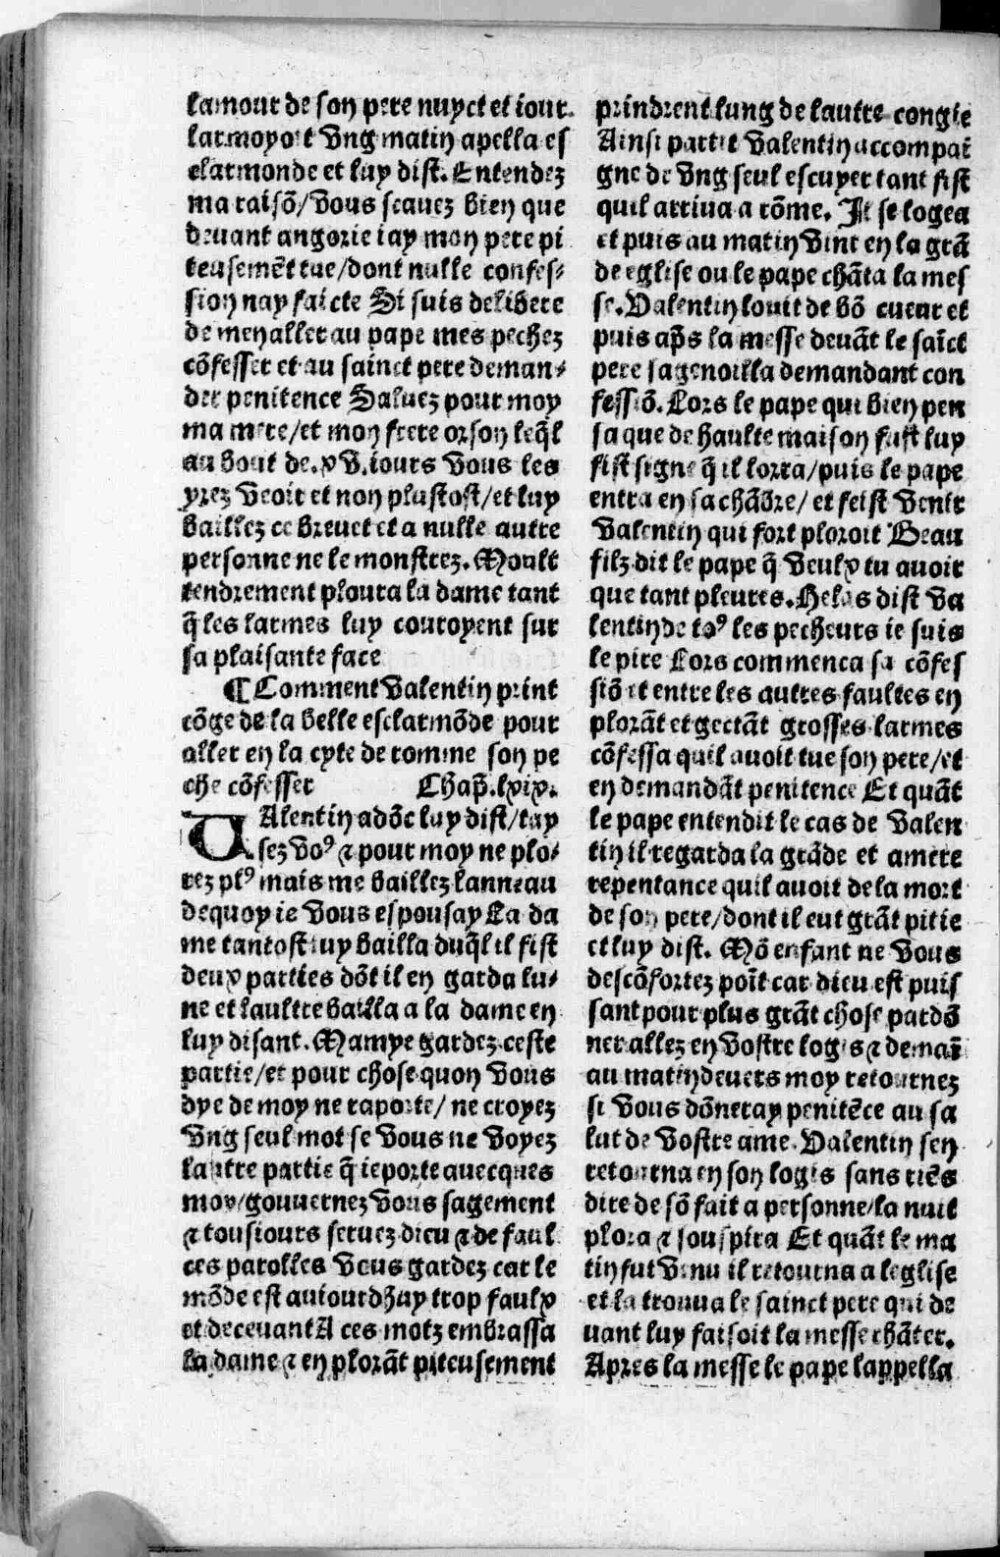 lamour de son pere nuyct et iour.
larmoyoit Vng matin apella es
clarmonde et luy dist. Entendez
ma raisõ/vous scauez bien que
deuant angorie iay mon pere pi
teusemẽt tue/dont nulle confes-
sion nay faicte Si suis delibere
de men aller au pape mes pechez
cõfesser et au sainct pere deman-
der penitence Saluez pour moy
ma mere/et mon frere orson leq̃l
au bout de.xv.iours vous les
yrez veoir et non plustost/et luy
baillez ce breuet et a nulle autre
personne ne le monstrez. Moult
tendrement ploura la dame tant
q̃ les larmes luy couroyent sur
sa plaisante face
¶ Comment valentin print
cõge de la belle esclarmõde pour
aller en la cyte de romme son pe
che cõfesser Chap̃.lxix.
VAlentin adõc luy dist/tay
sez voꝰ ⁊ pour moy ne plo-
rez plꝰ mais me baillez lanneau
dequoy ie vous espousay La da
me tantost luy bailla duq̃l il fist
deux parties dõt il en garda lu-
ne et laultre bailla a la dame en
luy disant. Mamye gardez ceste
partie/et pour chose quon vous
dye de moy ne raporte/ne croyez
vng seul mot se vous ne voyez
lautre partie q̃ ie porte auecques
moy/gouuernez vous sagement
⁊ tousiours seruez dieu ⁊ de faul
ces parolles vous gardez car le
mõde est auiourdhuy trop faulx
et deceuant A ces motz embrassa
la dame ⁊ en plorãt piteusement
prindrent lung de lautre congie
Ainsi partit valentin accompai
gne de vng seul escuyer tant fist
quil arriua a rõme. Il se logea
et puis au matin vint en la grã
de eglise ou le pape chãta la mes
se. Valentin louit de bõ cueur et
puis ap̃s la messe deuãt le saĩct
pere sagenoilla demandant con
fessiõ. Lors le pape qui bien pen
sa que de haulte maison fust luy
fist signe q̃ il lorra/puis le pape
entra en sa chãbre/et feist venir
valentin qui fort ploroit Beau
filz dit le pape q̃ veulx tu auoir
que tant pleures. Helas dist va
lentin de toꝰ les pecheurs ie suis
le pire Lors commenca sa cõfes
siõ et entre les autres faultes en
plorãt et gectãt grosses larmes
cõfessa quil auoit tue son pere/et
en demandãt penitence Et quãt
le pape entendit le cas de valen
tin il regarda la grãde et amere
repentance quil auoit de la mort
de son pere/dont il eut grãt pitie
et luy dist. Mõ enfant ne vous
descõfortez poĩt car dieu est puis
sant pour plus grãt chose pardõ
ner allez en vostre logis ⁊ demaĩ
au matin deuers moy retournez
si vous dõneray penitẽce au sa
lut de vostre ame. Valentin sen
retourna en son logis sans riẽs
dire de sõ fait a personne/la nuit
plora ⁊ souspira Et quãt le ma
tin fut venu il retourna a leglise
et la trouua le sainct pere qui de
uant luy faisoit la messe chãter.
Apres la messe le pape lappella